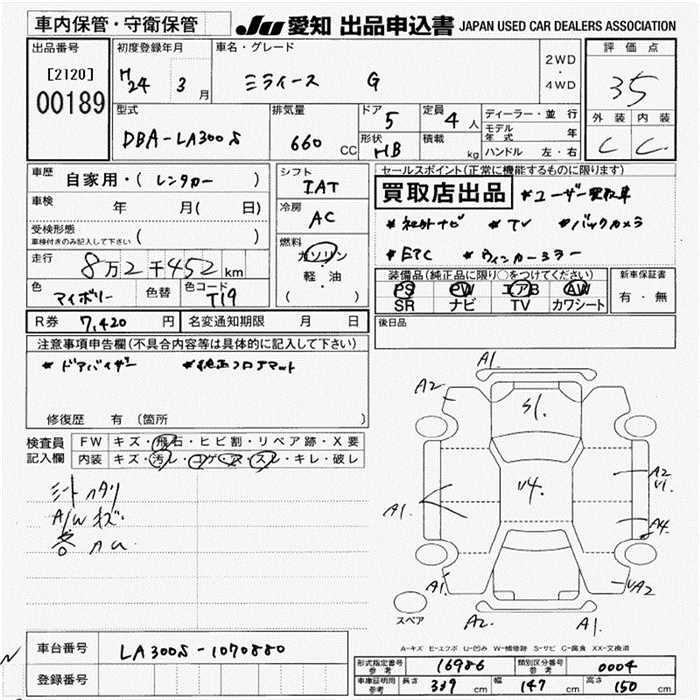 車内保管・守衛保管
JU 愛知 出品申込書 JAPAN USED CAR DEALERS ASSOCIATION
出品番号
[2120]
00189
初度登録年月
H24 年 3 月
車名・グレード
ミライース G
2WD
・
4WD
評価点
35
外装 内装
C C
型式
DBA-LA300S
排気量
660 CC
ドア 5
形状 HB
定員 4 人
積載 kg
ディーラー・並行
モデル年式 年
ハンドル 左・右
車歴 自家用・(レンタカー)
車検 年 月( 日)
受検形態
車検付きのみ記入して下さい ( )
走行 8万2千452 km
色 アイボリー 色替
色コード T19
R券 7,420 円
名変通知期限 月 日
シフト
IAT
冷房
AC
燃料
ガソリン
軽・油
( )
セールスポイント(正常に機能するものに限ります)
買取店出品 *ユーザー買取車
*社外ナビ *TV *バックカメラ
*ETC *ウィンカーミラー
装備品(純正品に限り○をつけてください)
PS PW エアB AW
SR ナビ TV カワシート
新車保証書
有・無
後日品
注意事項申告欄(不具合内容等は具体的に記入して下さい)
*ドアバイザー *純正フロアマット
修復歴 有 (箇所 )
検査員記入欄
FW キズ・飛石・ヒビ割・リペア跡・X要
内装 キズ・汚レ・コゲ・ア・スレ・キレ・破レ
シートヘタリ
A/Wキズ
A1
A2
A1
S1.
A2
V1
V4.
A1.
A4
A1
UA2
スペア
A2
A1.
A-キズ E-エクボ U-凹み W-補修跡 S-サビ C-腐食 XX-交換済
車台番号 LA300S-1070880
登録番号
形式指定番号 参考 16986
類別区分番号 参考 0004
車庫証明用 参考 長さ 339 cm 幅 147 cm 高さ 150 cm